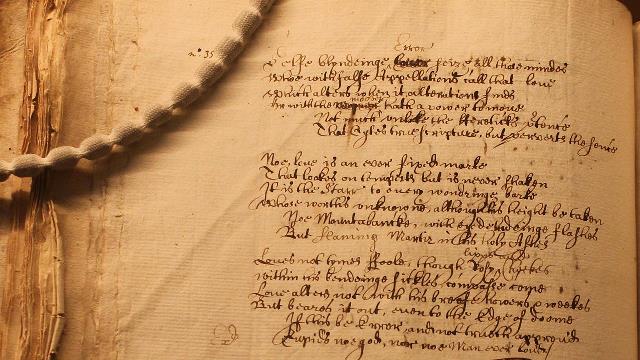 n.º 35
Error
Selfe blyndeinge seize all those mindes
Whoe with false Appellations call that love
Which alters when it alterations finds
Or with the mover hath a power to move
Not much unlike the Hereticks pretence
That Cytes true scripture, but perverts the sence
Noe, love is an ever fixed marke
That lookes on tempests but is never shaken
It is the starr to every wandringe barke
Whose worths unknowne, although his height be taken
Noe Mountabancke, with eye deludeinge flashes
But flaming Martir in his holy Ashes
lipps
Loves not tymes foole, though Rosy & cheekes
within his bendinge sickles compasse come
Love alters not with his breefe howers & weekes
But beares it out, even to the Edge of doome
If this be Error, and not truth approvd
Cupids noe god, nor noe Man ever lovd